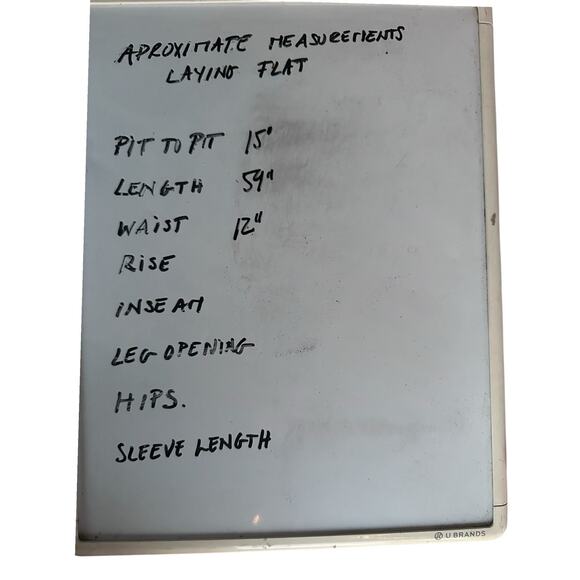 APROXIMATE MEASUREMENTS
LAYING FLAT
PIT TO PIT 15"
LENGTH 59"
WAIST 12"
RISE
INSEAM
LEG OPENING
HIPS.
SLEEVE LENGTH
U BRANDS